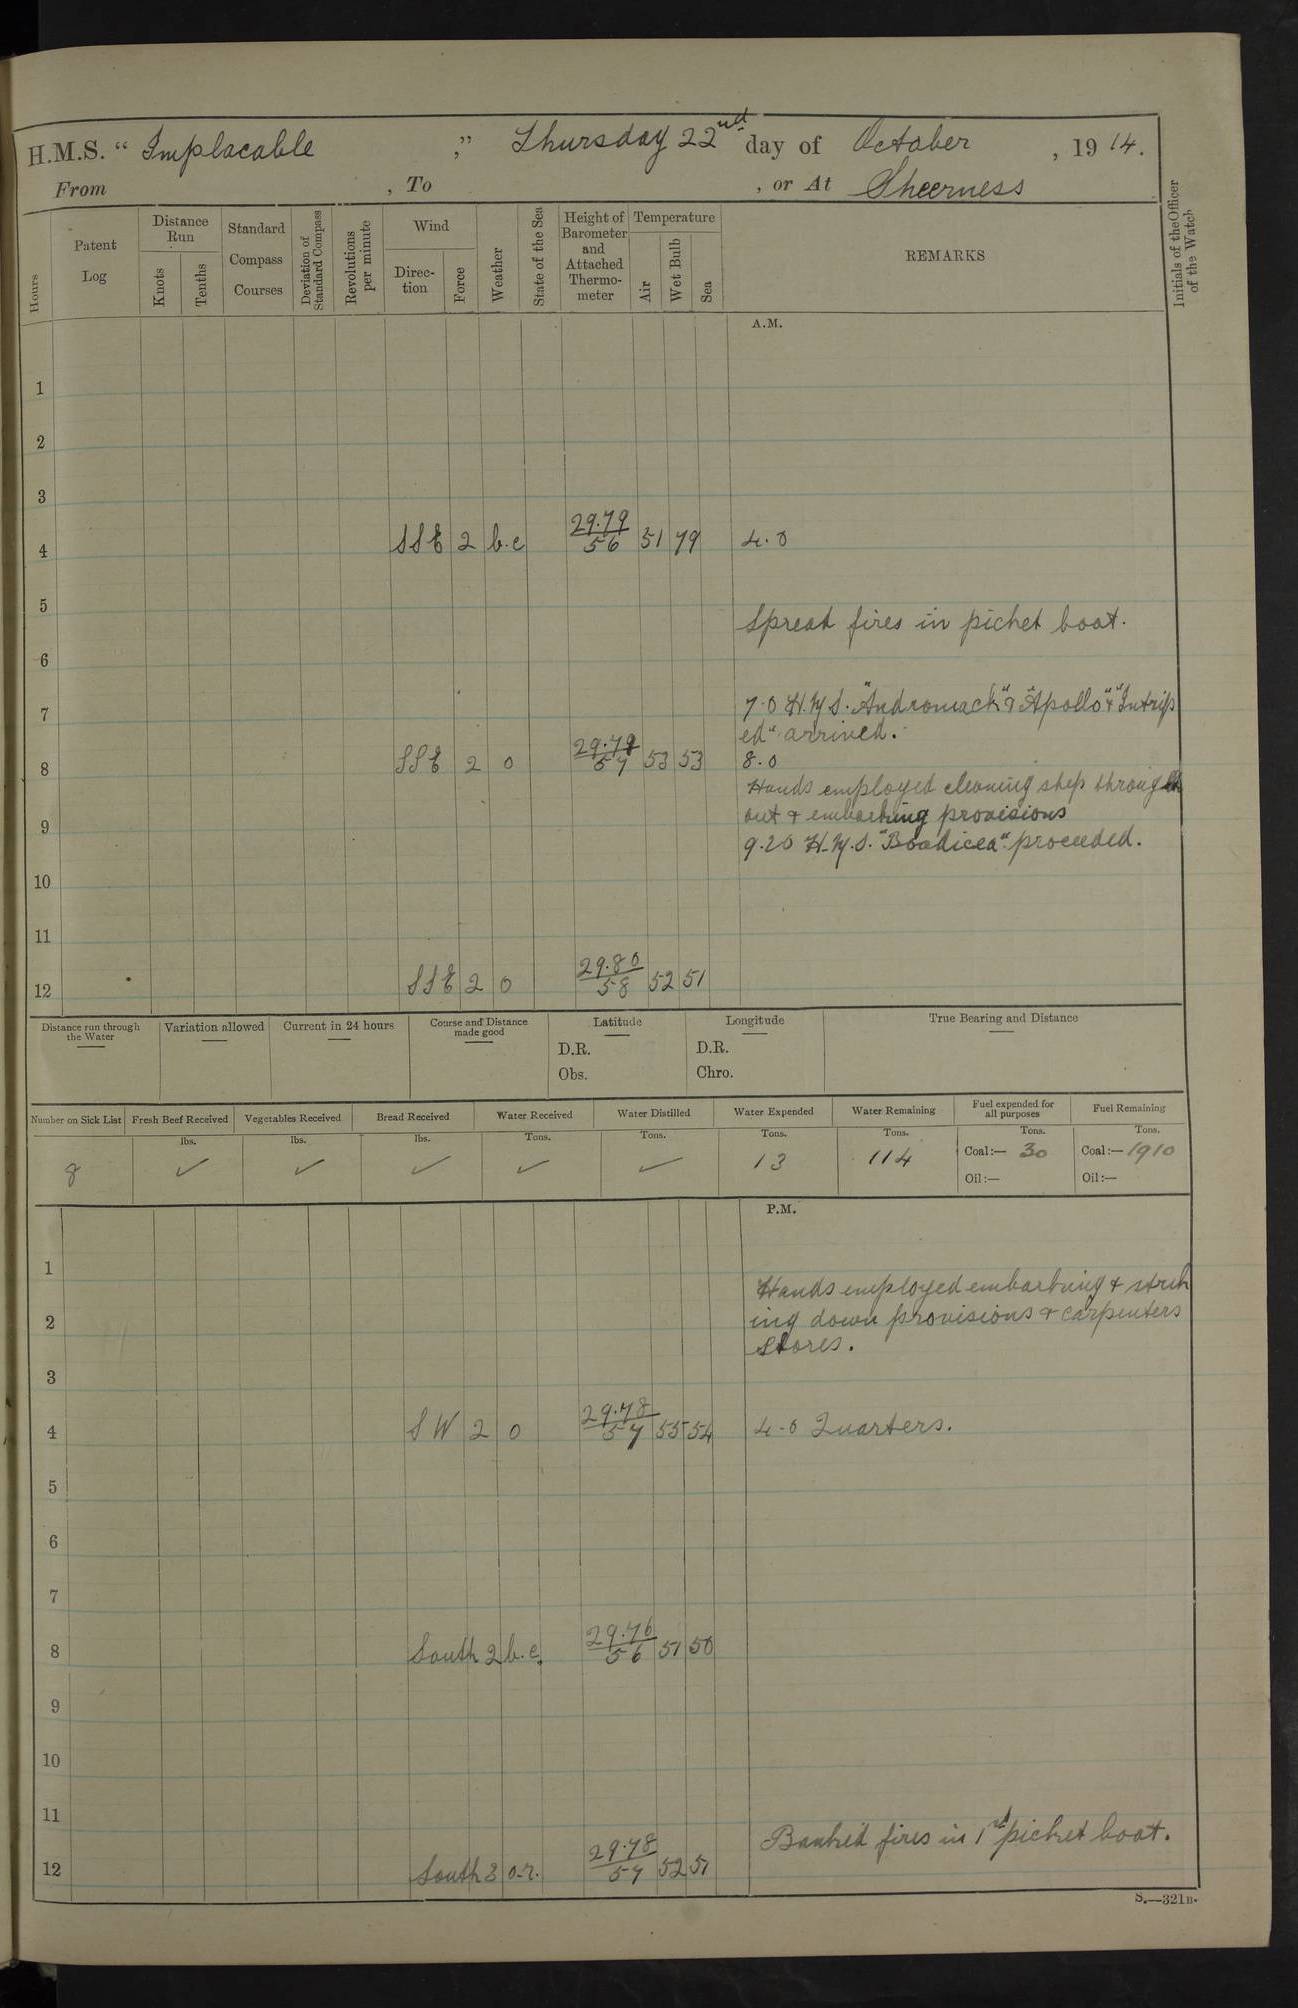 H.M.S. “ Implacable ,” Thursday 22nd day of October , 19 14.
From , To , or At Sheerness
Hours
Patent Log
Distance Run
Knots
Tenths
Standard Compass Courses
Deviation of Standard Compass
Revolutions per minute
Wind
Direc-tion
Force
Weather
State of the Sea
Height of Barometer and Attached Thermo-meter
Temperature
Air
Wet Bulb
Sea
REMARKS
Initials of the Officer of the Watch
A.M.
1
2
3
4 SSE 2 b.c 29.79 56 51 49 4.0
5
Spread fires in picket boat.
6
7 7.0 H.M.S. "Andromach" & "Apollo" & "Intrip
ed" arrived.
8 SSE 2 0 29.79 57 53 53 8.0
Hands employed cleaning ship through
out & embarking provisions
9
9.20 H.M.S. "Boadicea" proceeded.
10
11
12 SSE 2 0 29.80 58 52 51
Distance run through the Water
Variation allowed
Current in 24 hours
Course and Distance made good
Latitude
D.R.
Obs.
Longitude
D.R.
Chro.
True Bearing and Distance
Number on Sick List
Fresh Beef Received
Vegetables Received
Bread Received
Water Received
Water Distilled
Water Expended
Water Remaining
Fuel expended for all purposes
Fuel Remaining
lbs. lbs. lbs. Tons. Tons. Tons. Tons. Tons. Tons.
8 ✓ ✓ ✓ ✓ ✓ 13 114 Coal:— 30 Coal:— 1910
Oil:— Oil:—
P.M.
1
Hands employed embarking & strik
2 ing down provisions & carpenters
stores.
3
4 SW 2 0 29.78 57 55 54 4.0 Quarters.
5
6
7
8 South 2 b.c. 29.76 56 51 50
9
10
11
Banked fires in 1st picket boat.
12 South 3 o.r. 29.78 57 52 51
S.—321B.